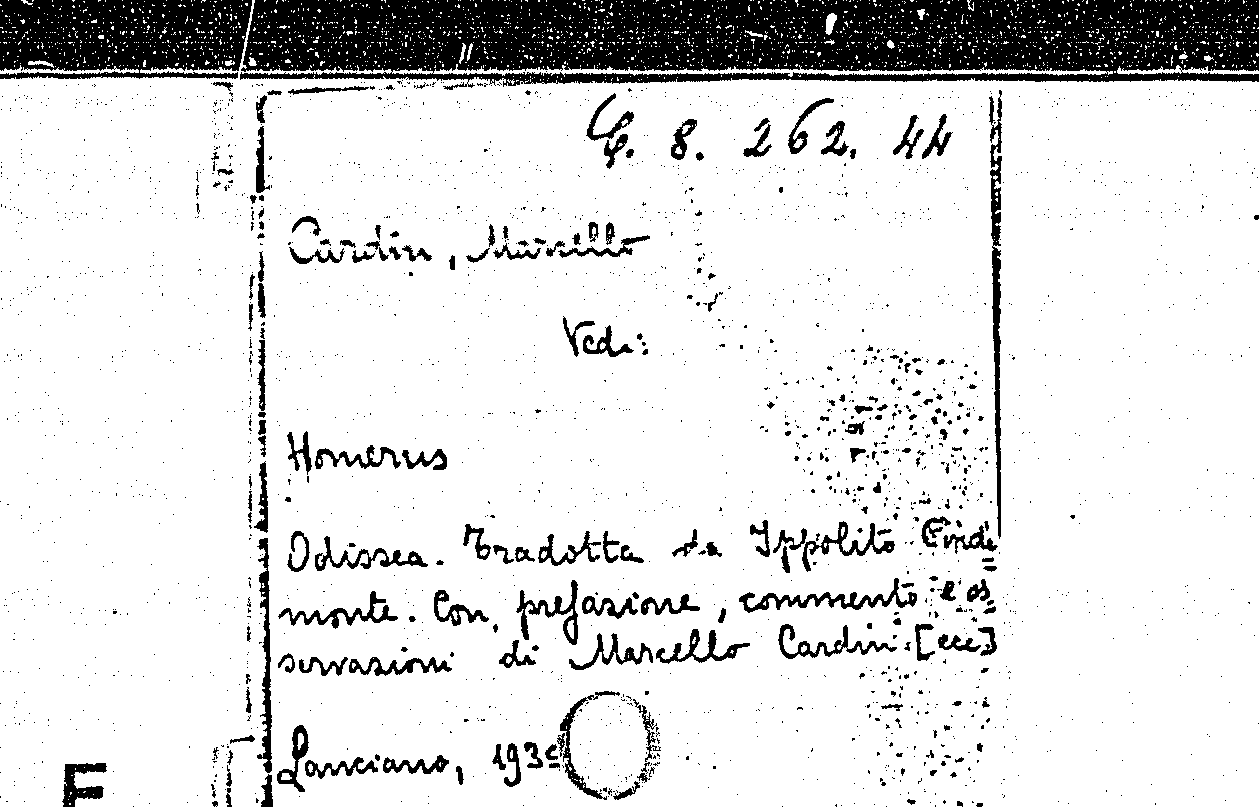 C. 8. 262. 44
Cardin, Marcello
Vedi:
Homerus
Odissea. Tradotta da Ippolito Pinde
monte. Con prefazione, commento e os
servazioni di Marcello Cardin [ecc]
Lanciano, 193
E